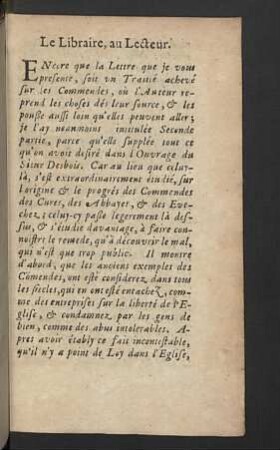 Le Libraire, au Lecteur.
ENcore que la Lettre que je vous
presente, soit vn Traitté achevé
sur les Commendes, où l'Auteur re-
prend les choses dés leur source, & les
pousse aussi loin qu'elles peuvent aller;
je l'ay neanmoins intitulée Seconde
partie, parce qu'elle supplée tout ce
qu'on avoit desiré dans l'Ouvrage du
Sieur Desbois. Car au lieu que celuy-
là, s'est extraordinairement étudié, sur
l'origine & le progrés des Commendes
des Cures, des Abbayes, & des Eve-
chez; celuy-cy passe legerement là des-
sus, & s'étudie davantage, à faire con-
noistre le remede, qu'à découvrir le mal,
qui n'est que trop public. Il monstre
d'abord, que les anciens exemples des
Cõmendes, ont esté considerez, dans tous
les siecles, qui en ont esté entachez, com-
me des entreprises sur la liberté de l'E-
glise, & condamnez par les gens de
bien, comme des abus intolerables. A-
pres avoir étably ce fait incontestable,
qu'il n'y a point de Loy dans l'Eglise,